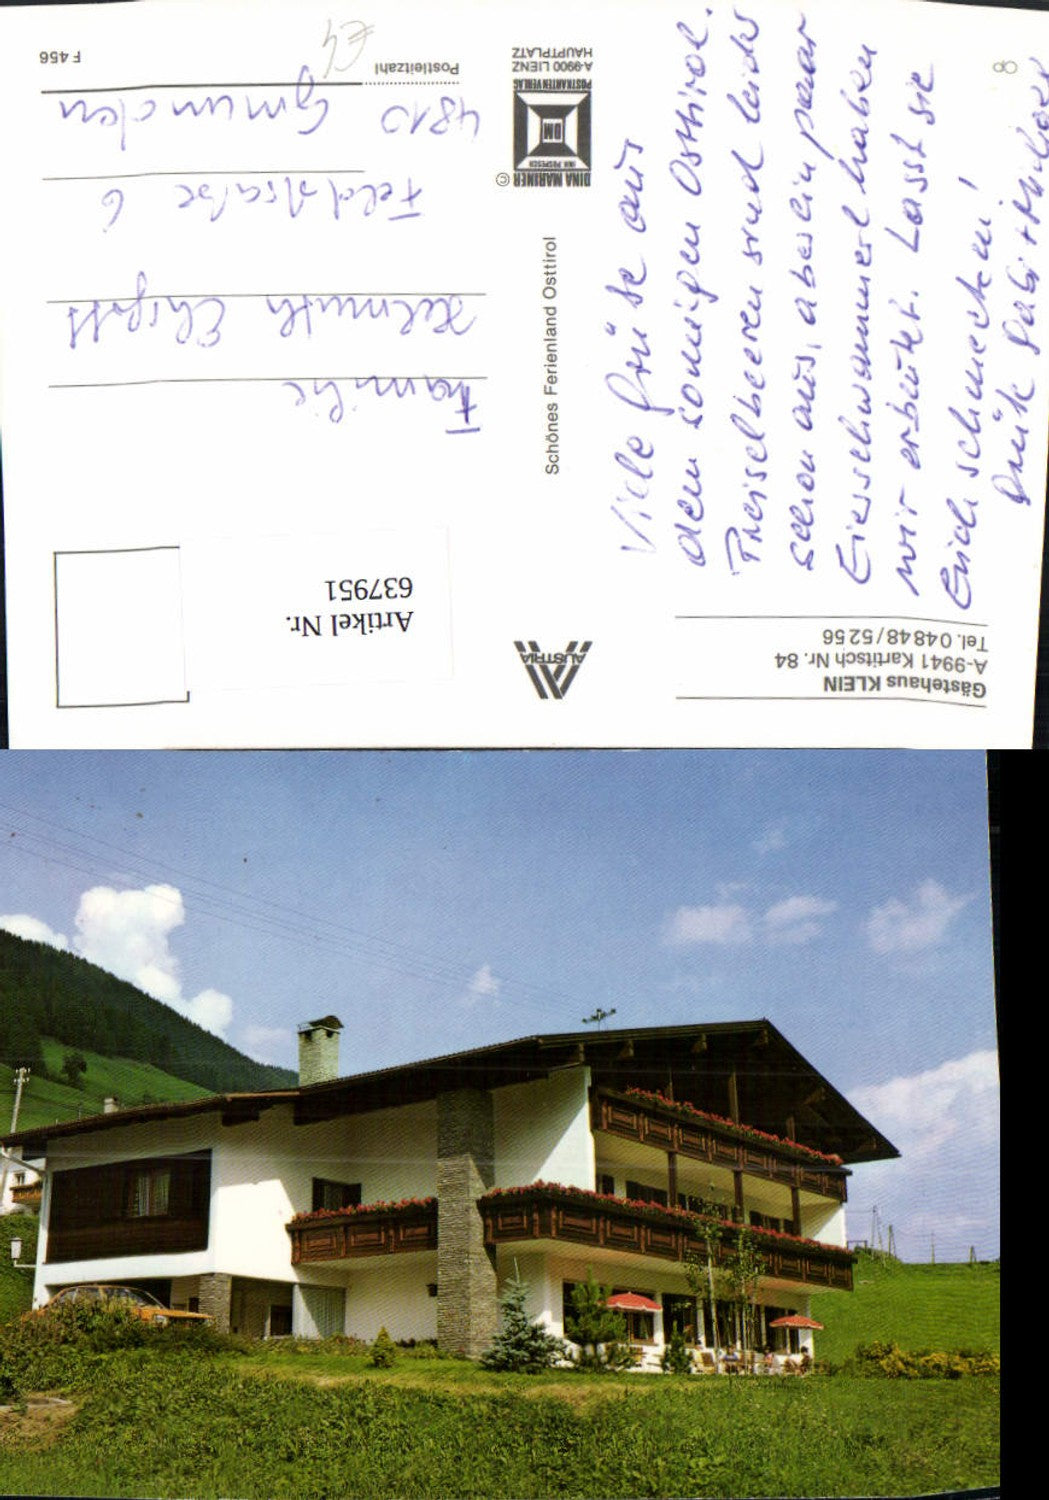 Gästehaus KLEIN
A-9941 Kartitsch Nr. 84
Tel. 0 48 48 / 52 56
Viele Grüße aus
dem sonnigen Osttirol.
Preiselbeeren sind leider
schon aus, aber ein paar
Eierschwammerl haben
wir erbeutet. Lasst sie
Euch schmecken!
Schönes Ferienland Osttirol
AUSTRIA
DINA MARINER ©
INH. PROPESCH
DM
POSTKARTENVERLAG
A-9900 LIENZ
HAUPTPLATZ
Artikel Nr.
637951
Familie
Helmuth
Feldstraße 6
4810 Gmunden
Postleitzahl
F 456
€4
8